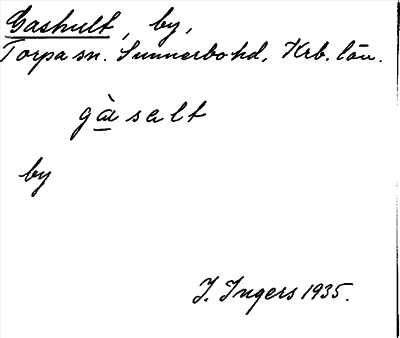 Gashult, by,
Torpa sn. Sunnerbo hd. Krb. län.
gàsalt
by
I. Ingers 1935.